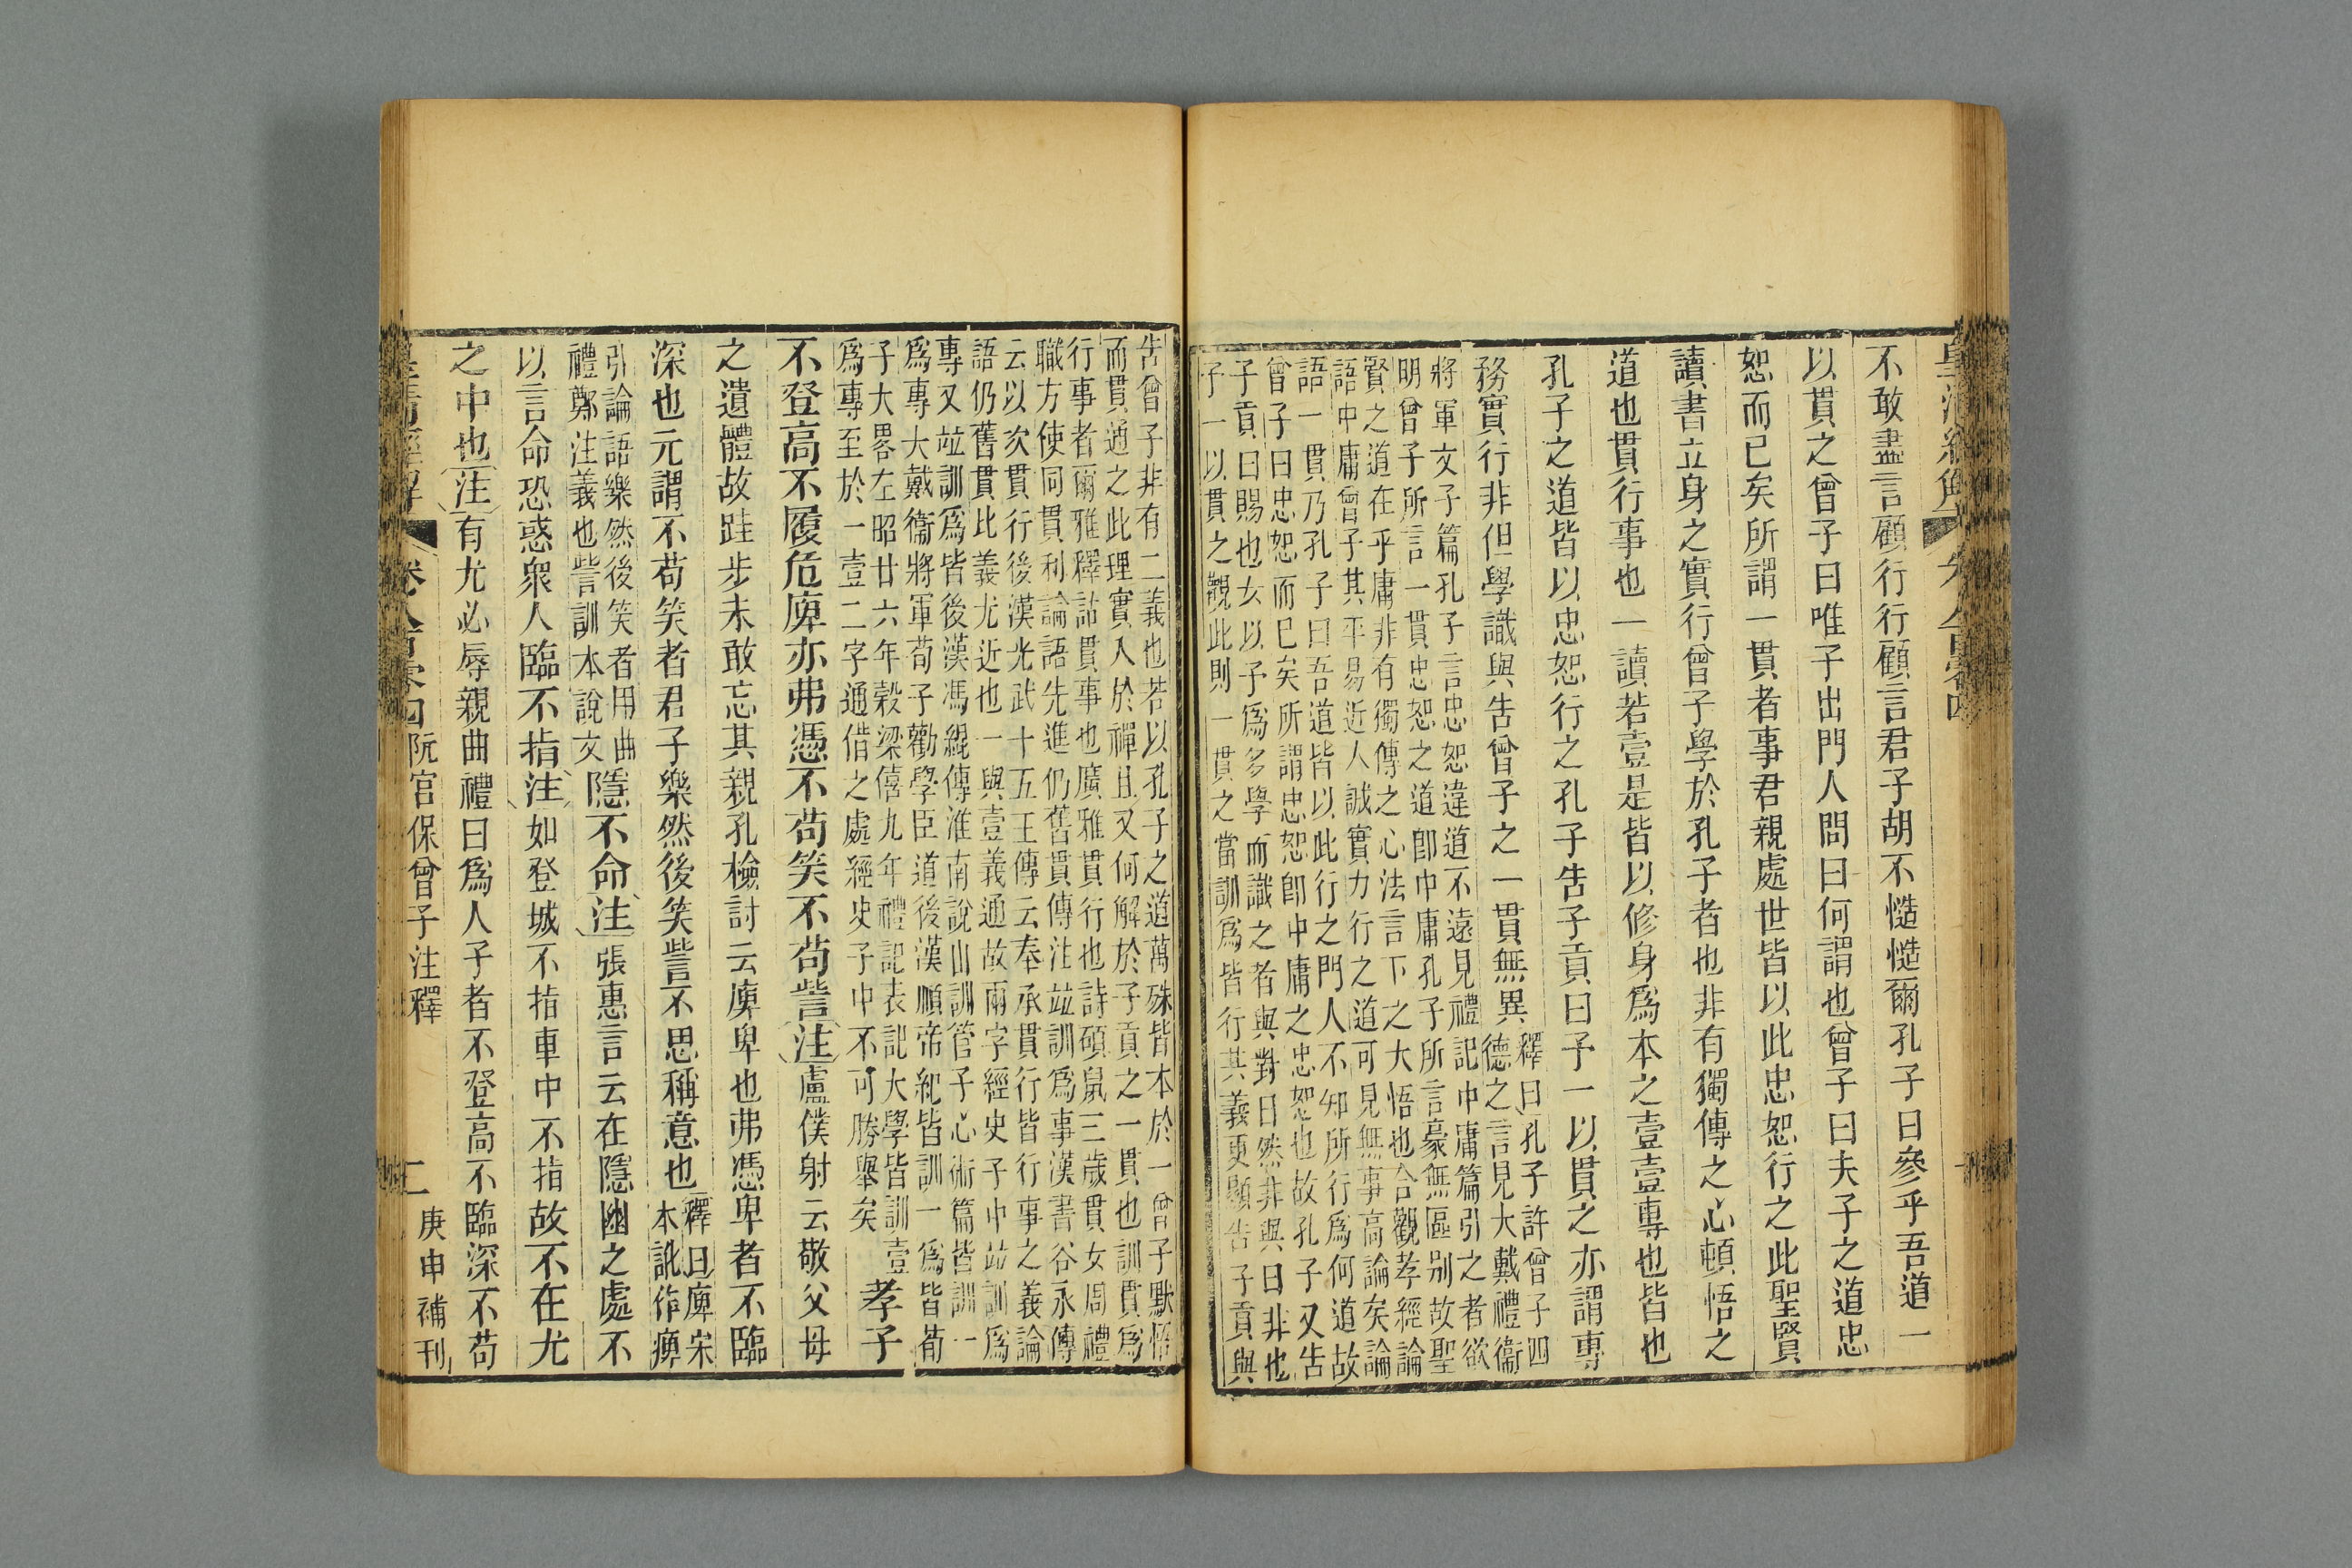 皇清經解
不敢盡言顧行行顧言君子胡不慥慥爾孔子曰參乎吾道一
以貫之曾子曰唯子出門人問曰何謂也曾子曰夫子之道忠
恕而已矣所謂一貫者事君親處世皆以此忠恕行之此聖賢
讀書立身之實行曾子學於孔子者也非有獨傳之心頓悟之
道也貫行事也一讀若壹是皆以修身爲本之壹壹專也皆也
孔子之道皆以忠恕行之孔子告子貢曰予一以貫之亦謂專
務實行非但學識與告曾子之一貫無異
釋曰孔子許曾子四
德之言見大戴禮衞
將軍文子篇孔子言忠恕違道不遠見禮記中庸篇引之者欲
明曾子所言一貫忠恕之道卽中庸孔子所言豪無區别故聖
賢之道在乎庸非有獨傳之心法言下之大悟也合觀孝經論
語中庸曾子其平易近人誠實力行之道可見無事高論矣論
語一貫乃孔子曰吾道皆以此行之門人不知所行爲何道故
曾子曰忠恕而已矣所謂忠恕卽中庸之忠恕也故孔子又告
子貢曰賜也女以予爲多學而識之者與對曰然非與曰非也
予一以貫之觀此則一貫之當訓爲皆行其義更顯告子貢與
告曾子非有二義也若以孔子之道萬殊皆本於一曾子默悟
而貫通之此理實入於禪且又何解於子貢之一貫也訓貫爲
行事者爾雅釋詁貫事也廣雅貫行也詩碩鼠三歲貫女周禮
職方使同貫利論語先進仍舊貫傳注竝訓爲事漢書谷永傳
云以次貫行後漢光武十五王傳云奉承貫行皆行事之義論
語仍舊貫此義尤近也一與壹義通故兩字經史子中竝訓爲
專又竝訓爲皆後漢馮緄傳淮南說山訓管子心術篇皆訓一
爲專大戴衞將軍荀子勸學臣道後漢順帝紀皆訓一爲皆荀
子大畧左昭廿六年穀梁僖九年禮記表記大學皆訓壹
爲專至於一壹二字通借之處經史子中不可勝舉矣
孝子
不登高不履危庳亦弗憑不苟笑不苟訾注盧僕射云敬父母
之遺體故跬步未敢忘其親孔檢討云庳卑也弗憑卑者不臨
深也元謂不苟笑者君子樂然後笑訾不思稱意也
釋曰庳宋
本訛作痺
引論語樂然後笑者用曲
禮鄭注義也訾訓本說文
隱不命注張惠言云在隱幽之處不
以言命恐惑衆人臨不指注如登城不指車中不指故不在尤
之中也注有尤必辱親曲禮曰爲人子者不登高不臨深不苟
卷八百零四 阮宮保曾子注釋 二 庚申補刊